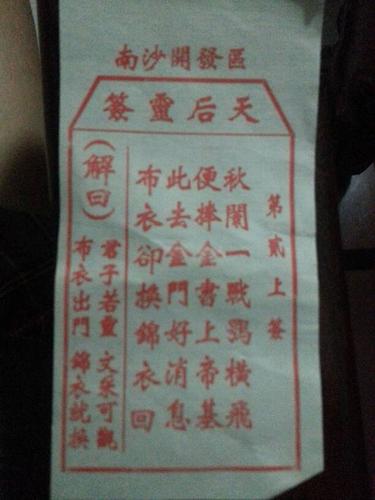 南沙開發區
天后靈簽
第貳上簽
秋闈一戰鶚橫飛
便捧金書上帝基
此去金門好消息
布衣卻換錦衣回
(解曰)
君子若靈 文采可觀
布衣出門 錦衣就換